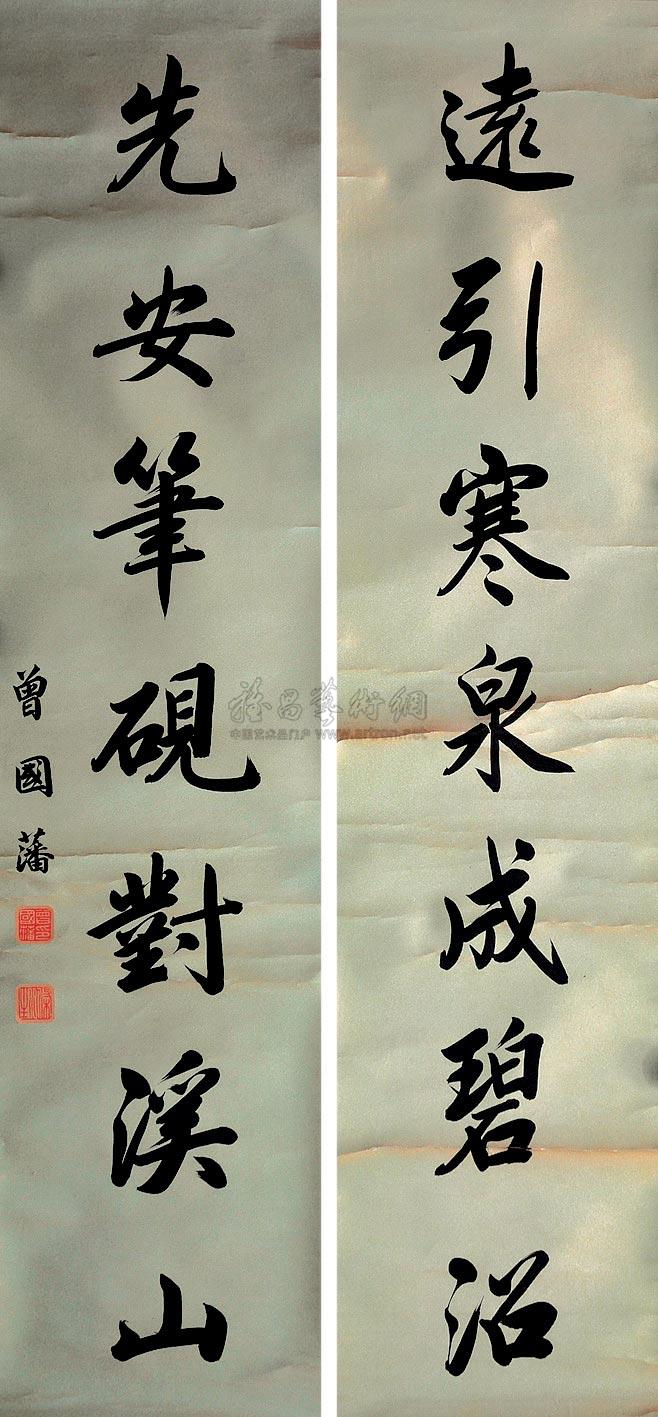 遠引寒泉成碧沼
先安筆硯對溪山
曾國藩
雅昌藝術網
中国艺术品门户 www.artron.net